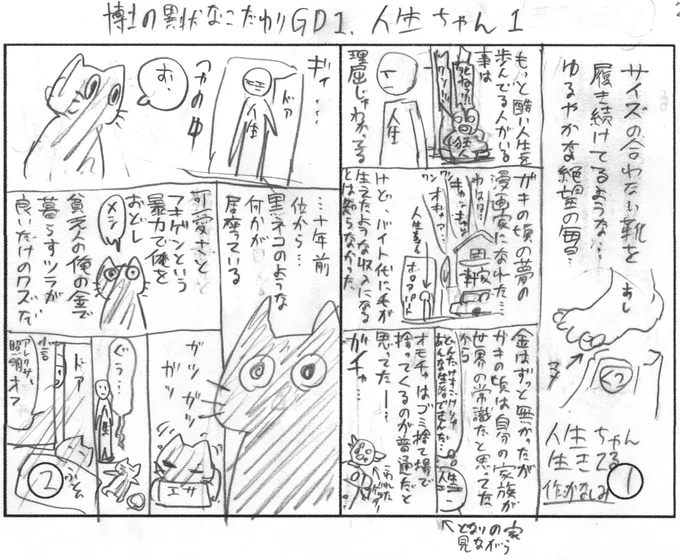 博士の異状なこだわりGD1、人生ちゃん1
サイズの合わない靴を
履き続けてるような…
ゆるやかな絶望の毎日…
あし
くつ
人生ちゃん
生きてる
作 かなしみ
1
もっと酷い人生を
歩んでる人がいる
事は
理屈じゃわかってる
狂人
人生
ガキの頃の夢の
漫画家になれた…
けど、バイト代に毛が
生えたような収入になる
とは知らなかった
ワン
ワン
オギャー
ボロアパート
金はずっと無かったが
ガキの頃は自分の家族が
世界の常識だと思ってた
から
オモチャはゴミ捨て場で
拾ってくるのが普通だと
思ってたー…
ガチャ…
人生
こわれた
となりの家
見ながら
ギィ…
ドア
人生
つかの中
む、
…十年前
位から…
黒ネコのような
何かが
居座っている
可愛さと
アキゲンという
暴力で俺を
おどし
貧乏人の俺の金で
暮らすツラが
良いだけのクズだ
メシ
ガッ
ガッ
ガッ
エサ
ぐぅ…
人生
ドア
ふとん
小言
アレクサ、
照明オフ
2